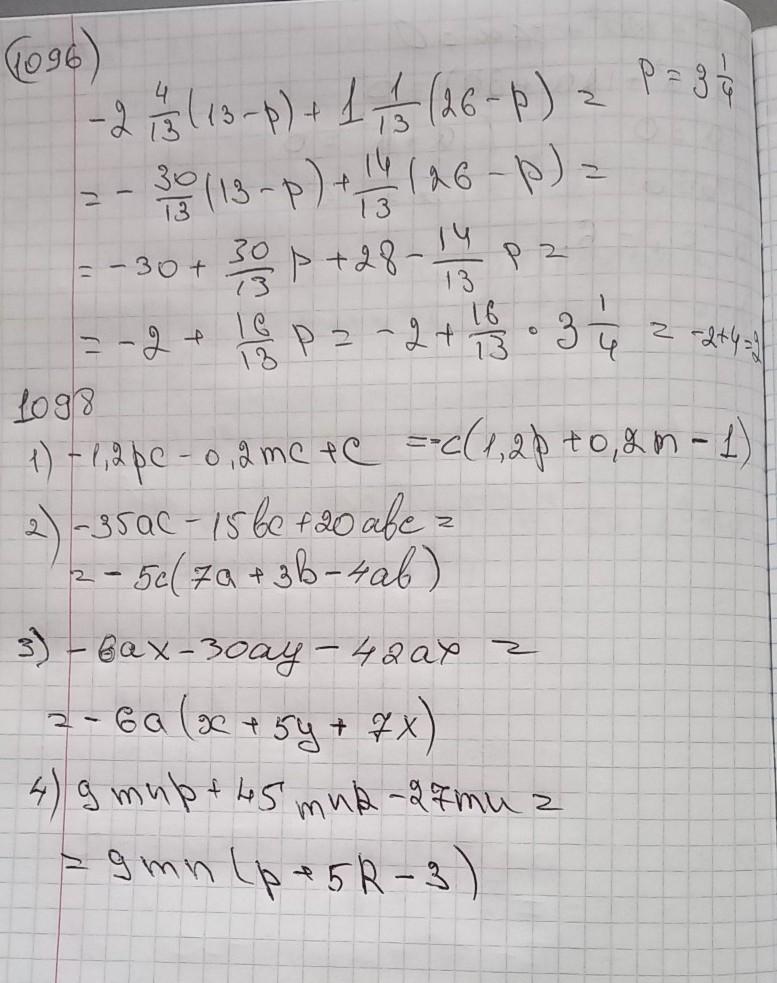 1096)
-2 4/13 (13-p) + 1 1/13 (26-p) = p = 3 1/4
= - 30/13 (13-p) + 14/13 (26-p) =
= -30 + 30/13 p + 28 - 14/13 p =
= -2 + 16/13 p = -2 + 16/13 · 3 1/4 = -2+4=2
1098
1) -1,2pc - 0,2mc + c = -c(1,2p + 0,2m - 1)
2) -35ac - 15bc + 20abc =
= -5c(7a + 3b - 4ab)
3) -6ax - 30ay - 42ax =
= -6a(x + 5y + 7x)
4) 9mnp + 45mnk - 27mn =
= 9mn(p + 5k - 3)